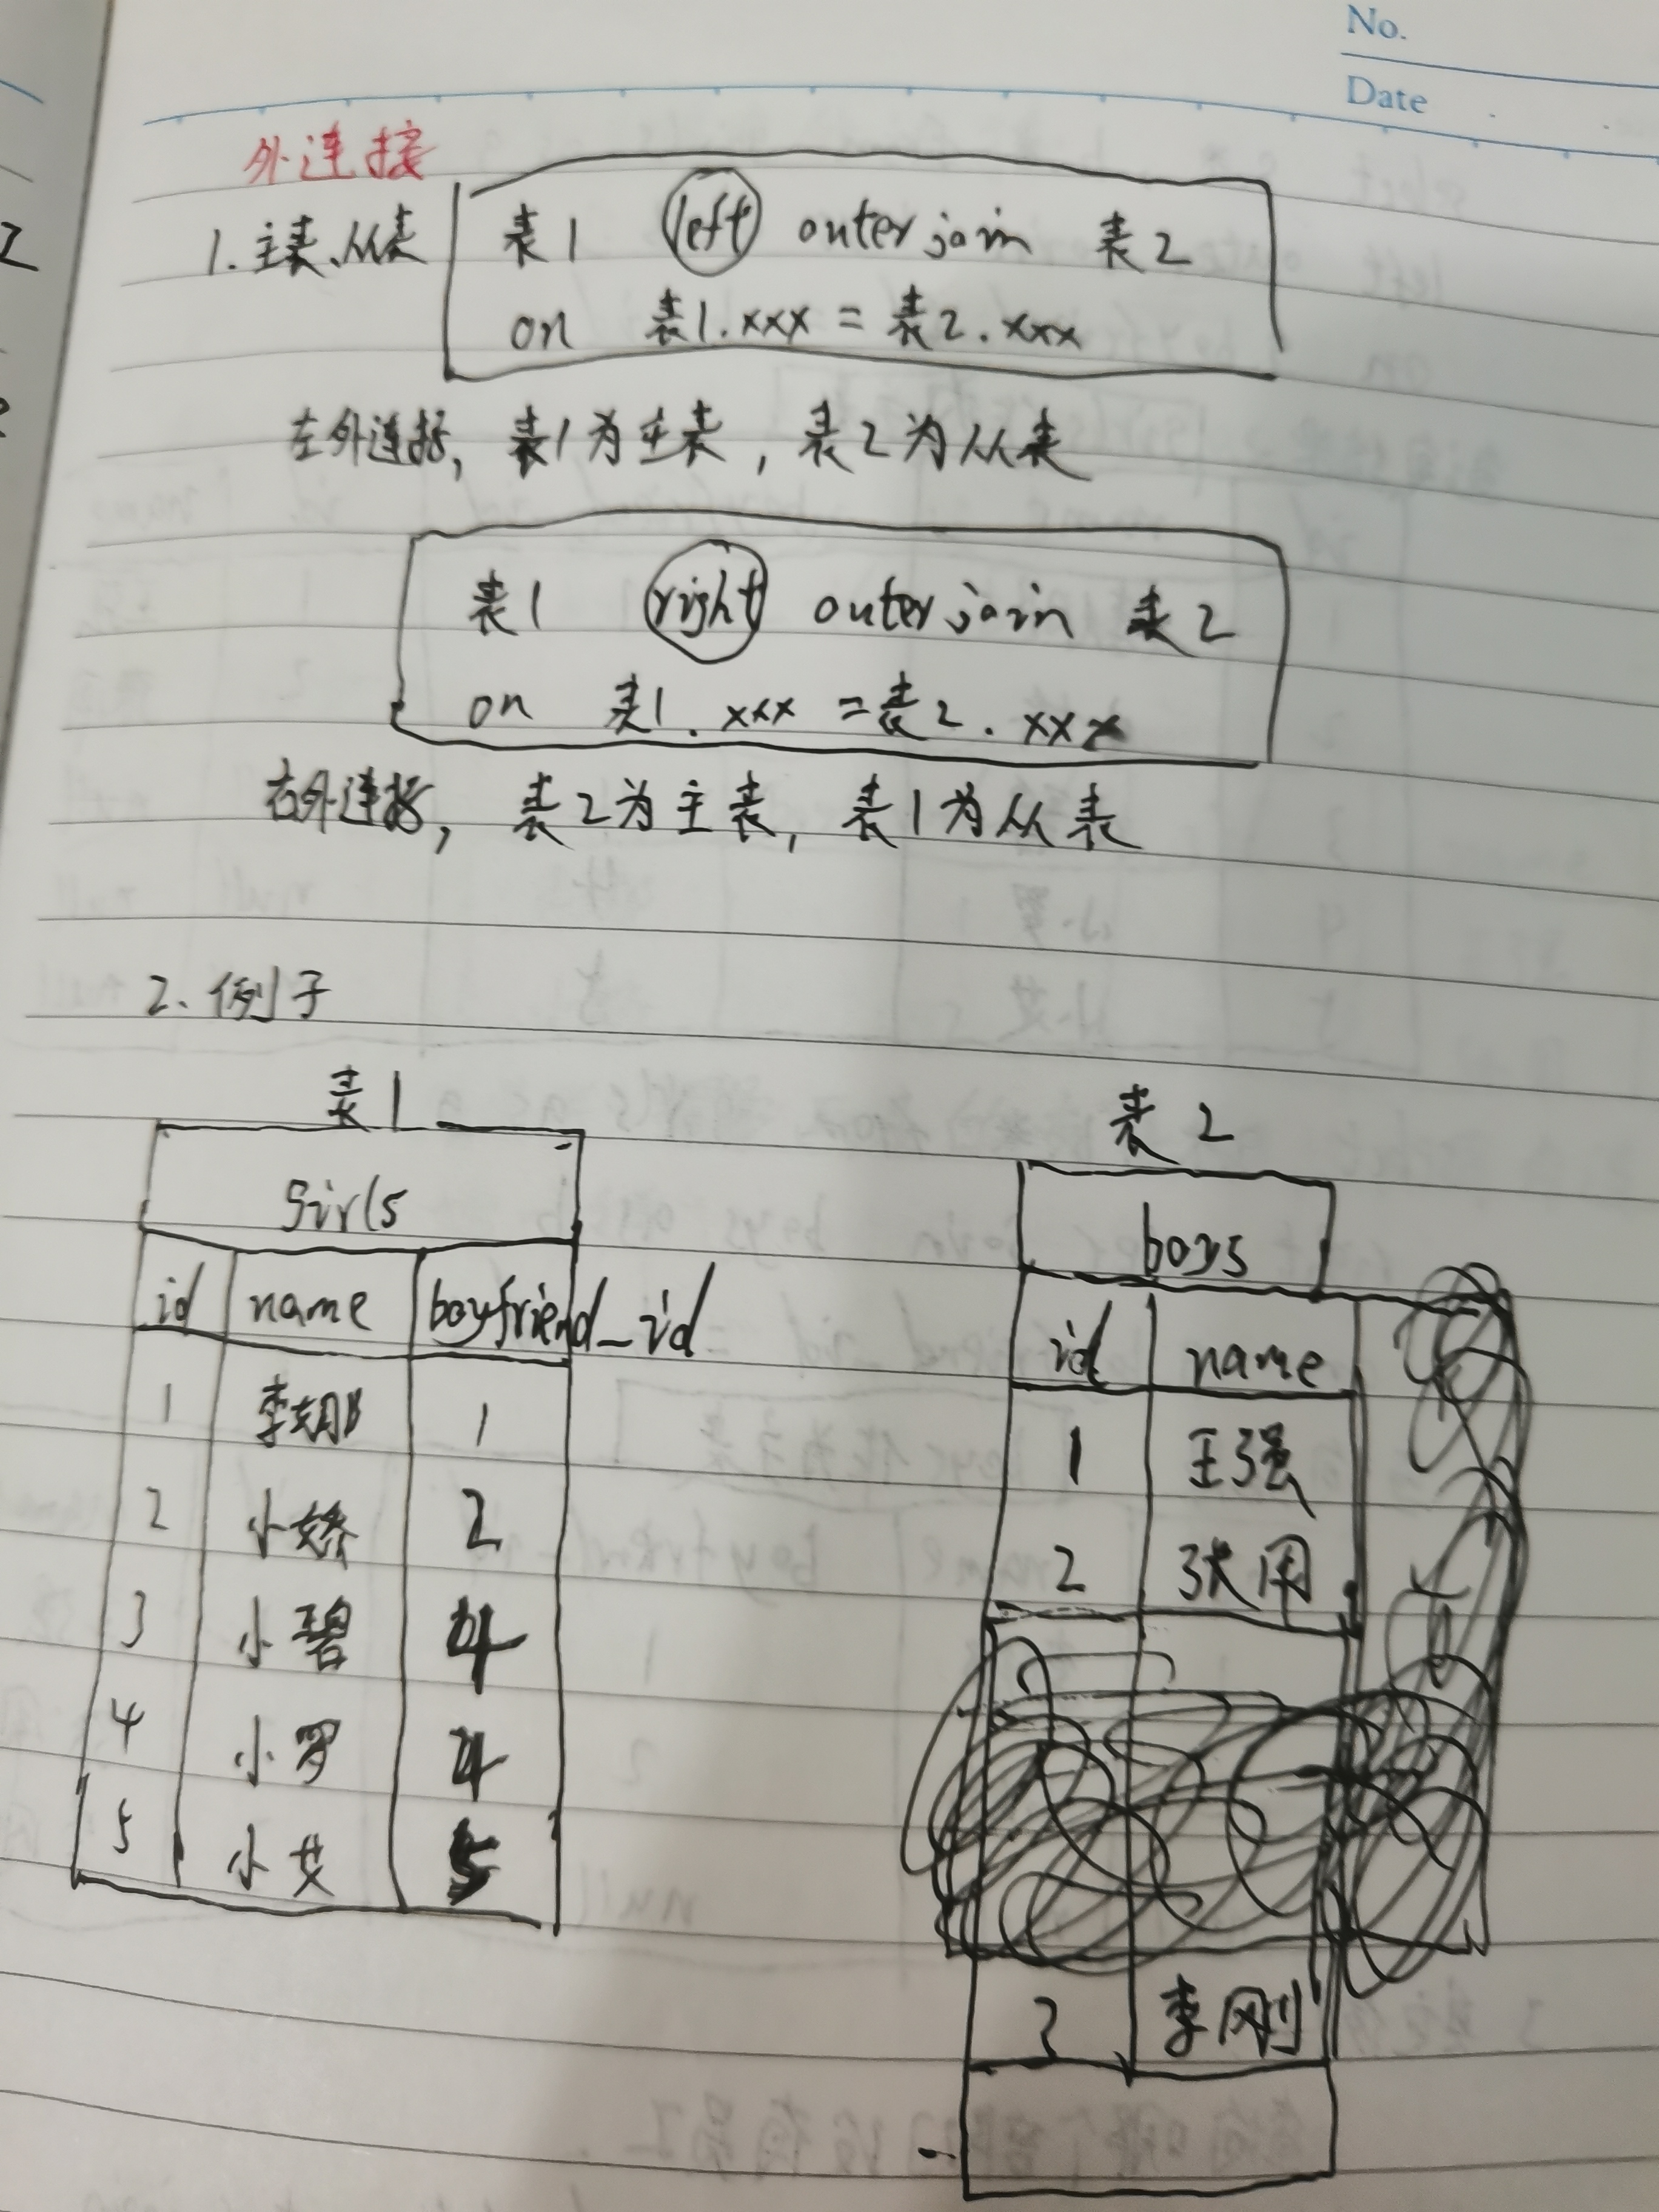 No.
Date
外连接
1. 主表、从表
表1 left outer join 表2
on 表1.xxx = 表2.xxx
左外连接, 表1为主表, 表2为从表
表1 right outer join 表2
on 表1.xxx = 表2.xxx
右外连接, 表2为主表, 表1为从表
2、例子
表1
girls
id name boyfriend_id
1 李娜 1
2 小娇 2
3 小碧 4
4 小罗 4
5 小女 5
表2
boys
id name
1 王强
2 张用
3 李刚